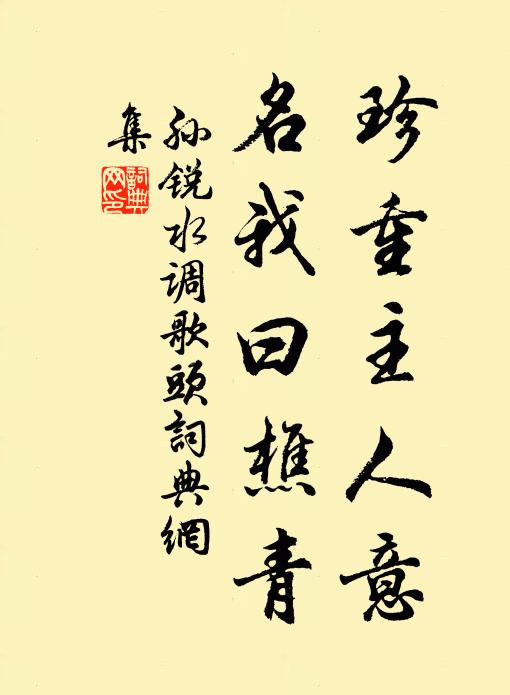 珍重主人意
名我曰樵青
孙锐水调歌頭詞典網
集
詞典网印